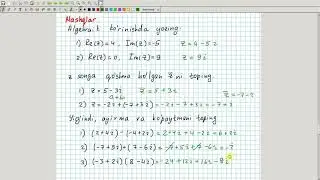 Mashqlar
Algebraik ko'rinishda yozing:
1) Re(z)=4, Im(z)=-5 z=4-5i
2) Re(z)=0, Im(z)=9 z=9i
z songa qo'shma bo'lgan z̄ ni toping.
z=5-3i z̄=5+3i
a+bi
z=-2i+(-7+3i)=-2i-7+3i=-7+i z̄=-7-i
Yig'indi, ayirma va ko'paytmani toping
1) (2+4i)-(-4+2i)=2+4i+4-2i=6+2i
2) (-7+5i)+(7-6i)=-7+5i+7-6i=-i
3) (-3+2i)(8-4i)=-24+12i+16i-8i